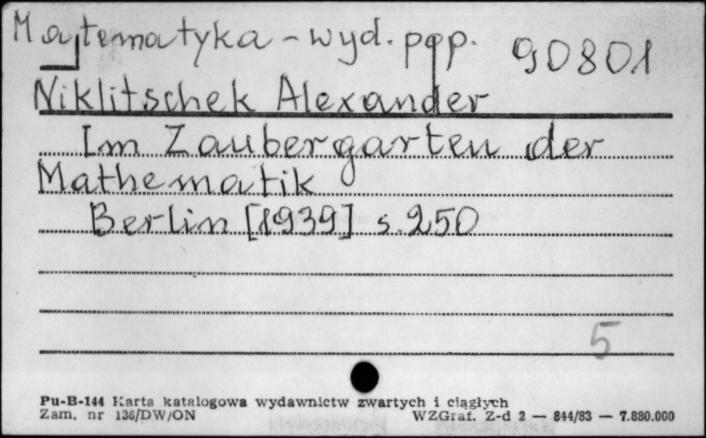 Matematyka - wyd. pop. 90801
Niklitschek Alexander
Im Zaubergarten der
Mathematik
Berlin [1939] s. 250
5
Pu-B-144 Karta katalogowa wydawnictw zwartych i ciągłych
Zam. nr 136/DW/ON WZGraf. Z-d 2 — 844/83 — 7.880.000